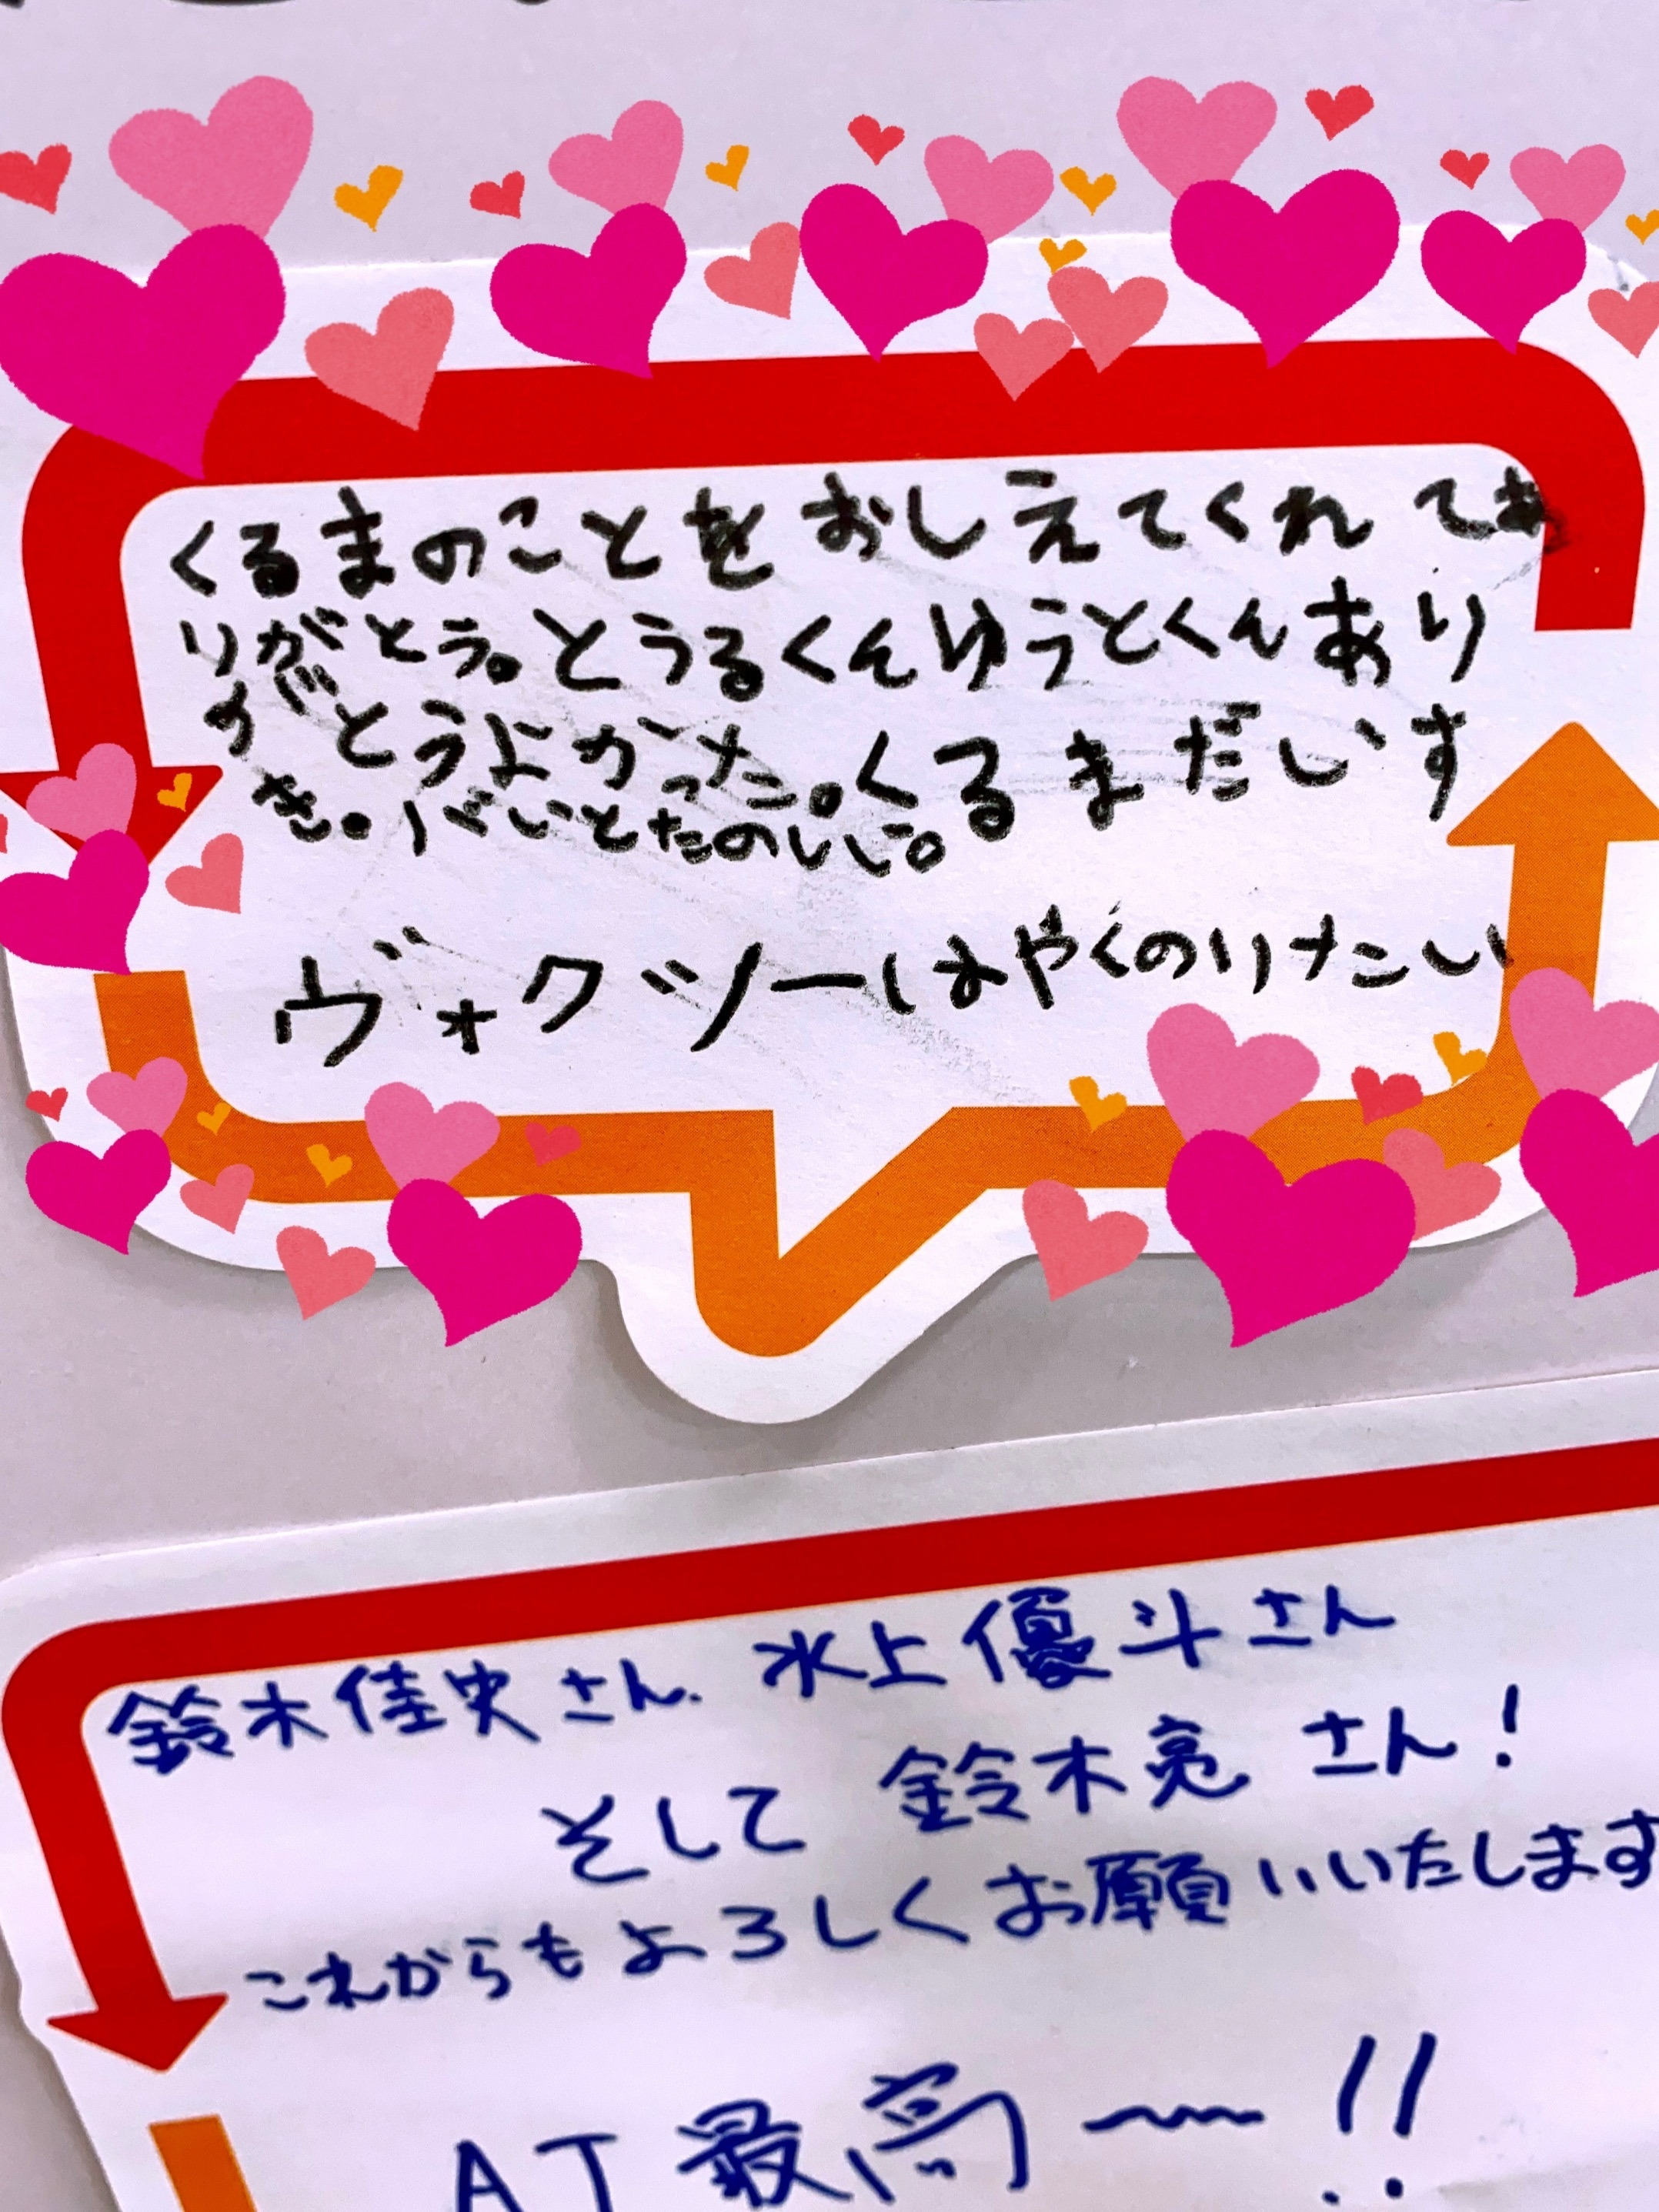 くるまのことをおしえてくれてあ
りがとう。とうるくんゆうとくんあり
がとうよかった。くるまだいす
き。バいとたのしい。
ヴォクツーはやくのりたい
鈴木佳史さん、水上優斗さん
そして 鈴木亮さん!
これからもよろしくお願いいたします
AT最高〜!!